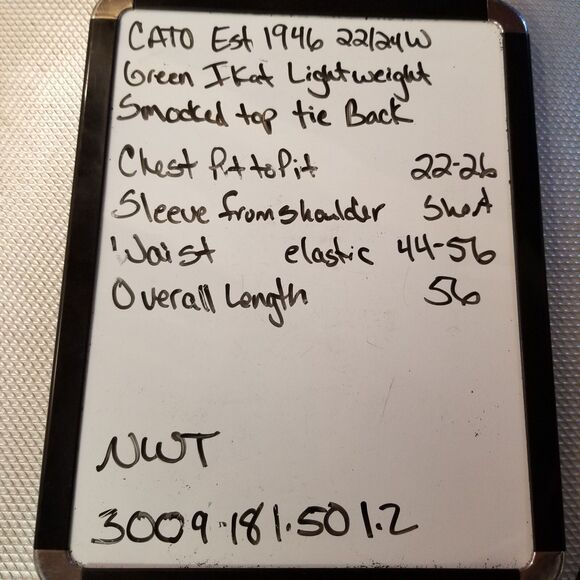 CATO Est 1946 22/24W
Green IKat Lightweight
Smocked top tie Back
Chest Pit to Pit 22-26
Sleeve from shoulder Short
Waist elastic 44-56
Overall Length 56
NWT
3009.181.501.2